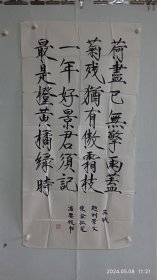 荷盡已無擎雨蓋
菊残猶有傲霜枝
一年好景君須記
最是橙黄橘緑時
2024.05.08 11:21